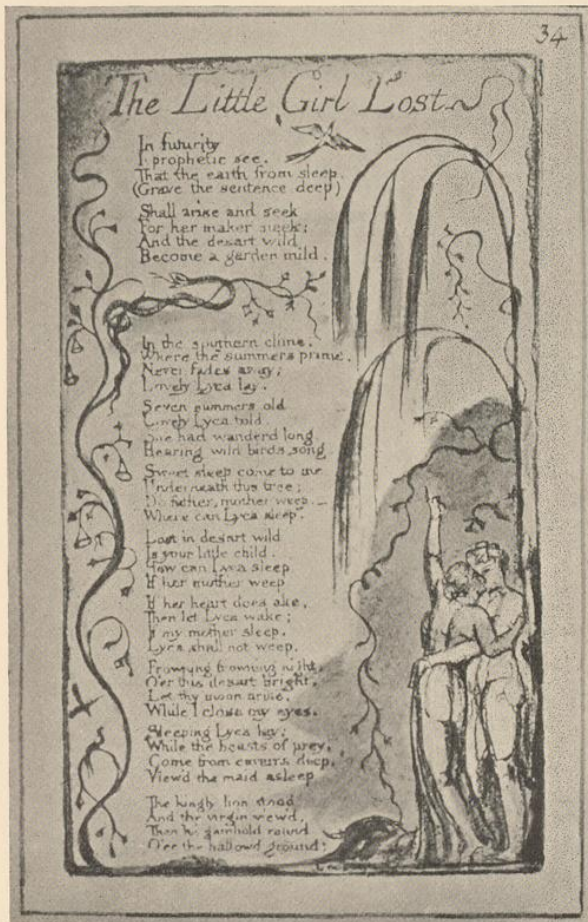 34
The Little Girl Lost
In futurity
I prophetic see.
That the earth from sleep.
(Grave the sentence deep)
Shall arise and seek
For her maker meek:
And the desart wild
Become a garden mild.
In the southern clime,
Where the summers prime,
Never fades away;
Lovely Lyca lay.
Seven summers old
Lovely Lyca told,
She had wanderd long
Hearing wild birds song
Sweet sleep come to me
Underneath this tree;
Do father, mother weep.—
Where can Lyca sleep.
Lost in desart wild
Is your little child.
How can Lyca sleep
If her mother weep
If her heart does ake,
Then let Lyca wake;
If my mother sleep,
Lyca shall not weep.
Frowning frowning night,
O'er this desart bright,
Let thy moon arise,
While I close my eyes.
Sleeping Lyca lay;
While the beasts of prey,
Come from caverns deep,
View'd the maid asleep
The kingly lion stood
And the virgin view'd,
Then he gambold round
O'er the hallowd ground: